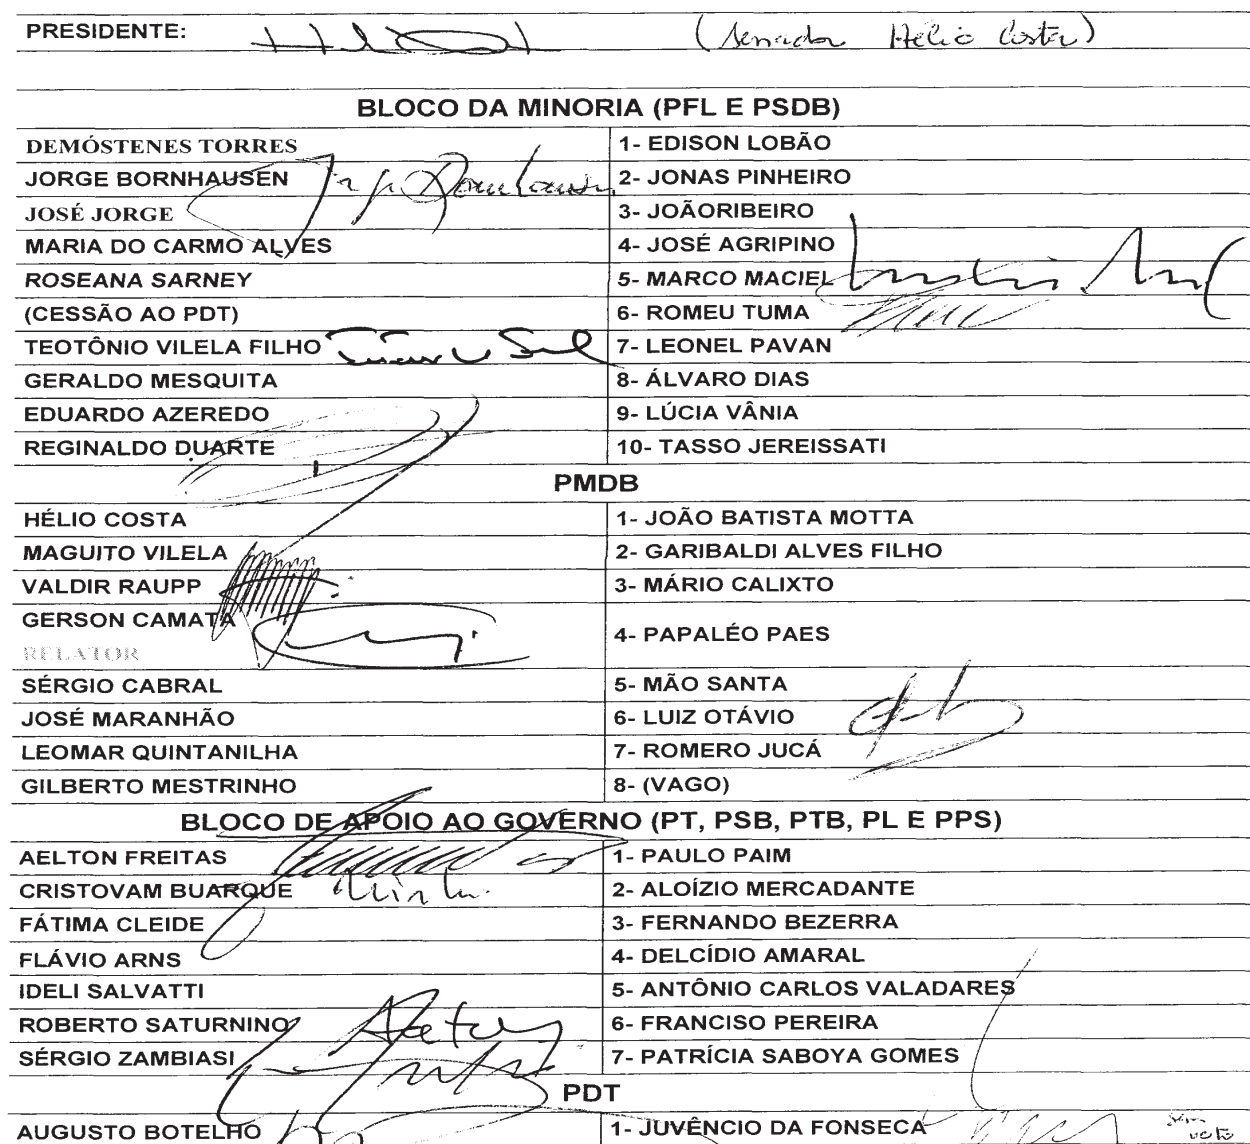 PRESIDENTE: (Senador Hélio Costa)
BLOCO DA MINORIA (PFL E PSDB)
DEMÓSTENES TORRES 1- EDISON LOBÃO
JORGE BORNHAUSEN 2- JONAS PINHEIRO
JOSÉ JORGE 3- JOÃORIBEIRO
MARIA DO CARMO ALVES 4- JOSÉ AGRIPINO
ROSEANA SARNEY 5- MARCO MACIEL
(CESSÃO AO PDT) 6- ROMEU TUMA
TEOTÔNIO VILELA FILHO 7- LEONEL PAVAN
GERALDO MESQUITA 8- ÁLVARO DIAS
EDUARDO AZEREDO 9- LÚCIA VÂNIA
REGINALDO DUARTE 10- TASSO JEREISSATI
PMDB
HÉLIO COSTA 1- JOÃO BATISTA MOTTA
MAGUITO VILELA 2- GARIBALDI ALVES FILHO
VALDIR RAUPP 3- MÁRIO CALIXTO
GERSON CAMATA 4- PAPALÉO PAES
RELATOR
SÉRGIO CABRAL 5- MÃO SANTA
JOSÉ MARANHÃO 6- LUIZ OTÁVIO
LEOMAR QUINTANILHA 7- ROMERO JUCÁ
GILBERTO MESTRINHO 8- (VAGO)
BLOCO DE APOIO AO GOVERNO (PT, PSB, PTB, PL E PPS)
AELTON FREITAS 1- PAULO PAIM
CRISTOVAM BUARQUE 2- ALOÍZIO MERCADANTE
FÁTIMA CLEIDE 3- FERNANDO BEZERRA
FLÁVIO ARNS 4- DELCÍDIO AMARAL
IDELI SALVATTI 5- ANTÔNIO CARLOS VALADARES
ROBERTO SATURNINO 6- FRANCISO PEREIRA
SÉRGIO ZAMBIASI 7- PATRÍCIA SABOYA GOMES
PDT
AUGUSTO BOTELHO 1- JUVÊNCIO DA FONSECA sem voto